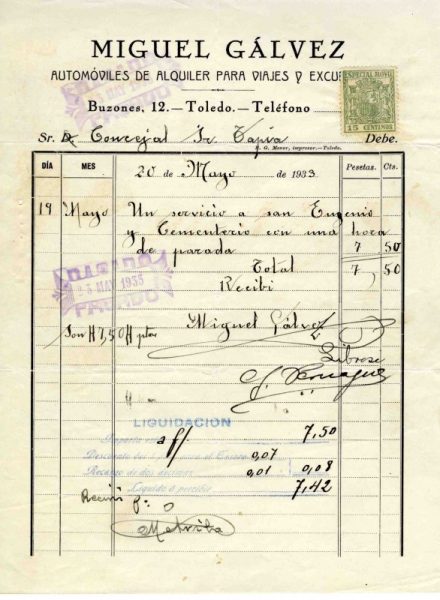 MIGUEL GÁLVEZ
AUTOMÓVILES DE ALQUILER PARA VIAJES Y EXCUR
ESPECIAL MOVIL
15 CENTIMOS
Buzones, 12.—Toledo.—Teléfono
Sr. D. Concejal Sr. Tapia Debe.
DÍA MES 20 de Mayo de 1933 Pesetas. Cts.
19 Mayo Un servicio a san Eugenio
y Cementerio con una hora
de parada 7 50
Total 7 50
Recibi
PAGADO
23 MAY 1933
PAGADO
Son #7,50# ptas Miguel Gálvez
Librese
LIQUIDACION
Importa 7,50
Descuento del 0,07
Recargo de dos décimas 0,01 0,08
Líquido a percibir 7,42
Recibi
P. O